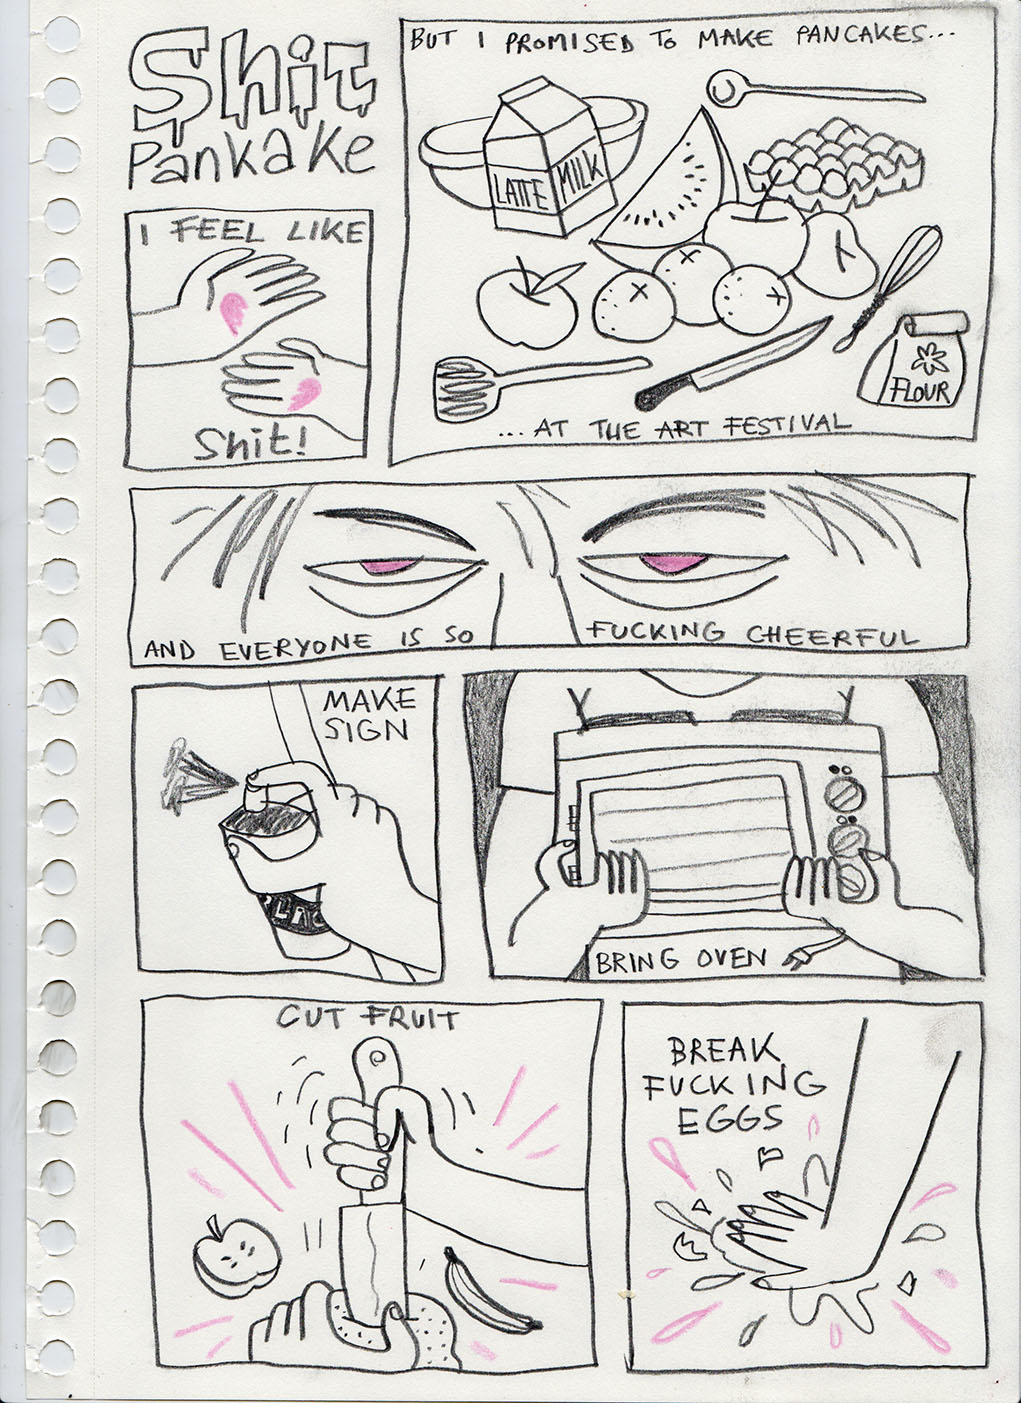 Shit
Pankake
I FEEL LIKE
Shit!
BUT I PROMISED TO MAKE PANCAKES...
LATTE
MILK
FLOUR
...AT THE ART FESTIVAL
AND EVERYONE IS SO
FUCKING CHEERFUL
MAKE
SIGN
BRING OVEN
CUT FRUIT
BREAK
FUCKING
EGGS